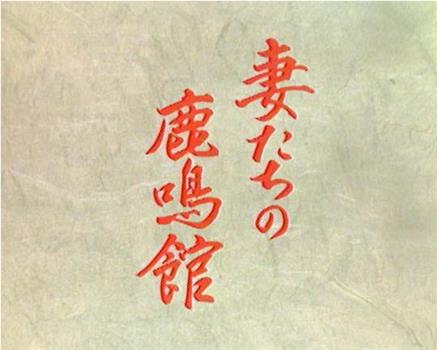 妻たちの
鹿鳴館